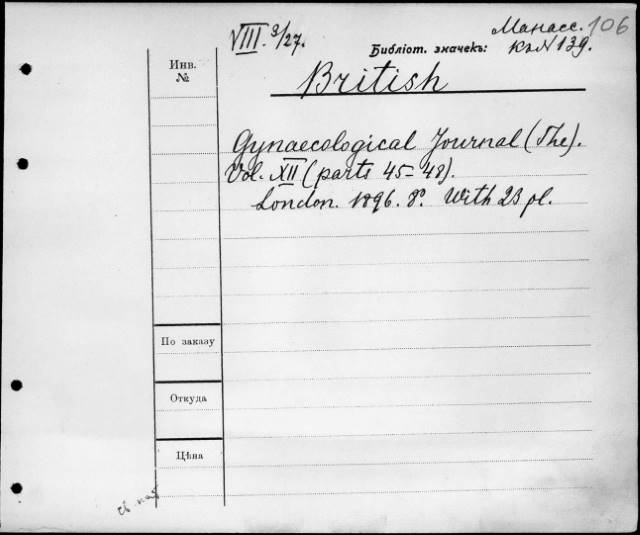 VIII. 3/27.
Манасс. 106
Библіот. значекъ: Къ N 139.
Инв. №
British
Gynaecological Journal (The).
Vol. XII (parts 45-48).
London. 1896. 8°. With 23 pl.
По заказу
Откуда
Цѣна